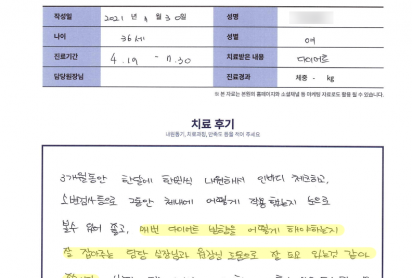 작성일 2021년 4월 30일 성명
나이 36세 성별 여
진료기간 4.19 - 7.30 치료받은 내용 다이어트
담당원장님 진료경과 체중 - kg
※ 본 자료는 본원의 홈페이지와 소셜채널 등 마케팅 자료로도 활용 될 수 있습니다.
치료 후기
내원동기, 치료과정, 만족도 등을 적어 주세요
3개월동안 한달에 한번씩 내원해서 인바디 체크하고,
소변검사등으로 그동안 체내에 어떻게 작용했는지 눈으로
볼수 있어 좋고, 매번 다이어트 방향을 어떻게 해야하는지
잘 잡아주는 담당 실장님과 원장님 도움으로 잘 되고 있는것 같아